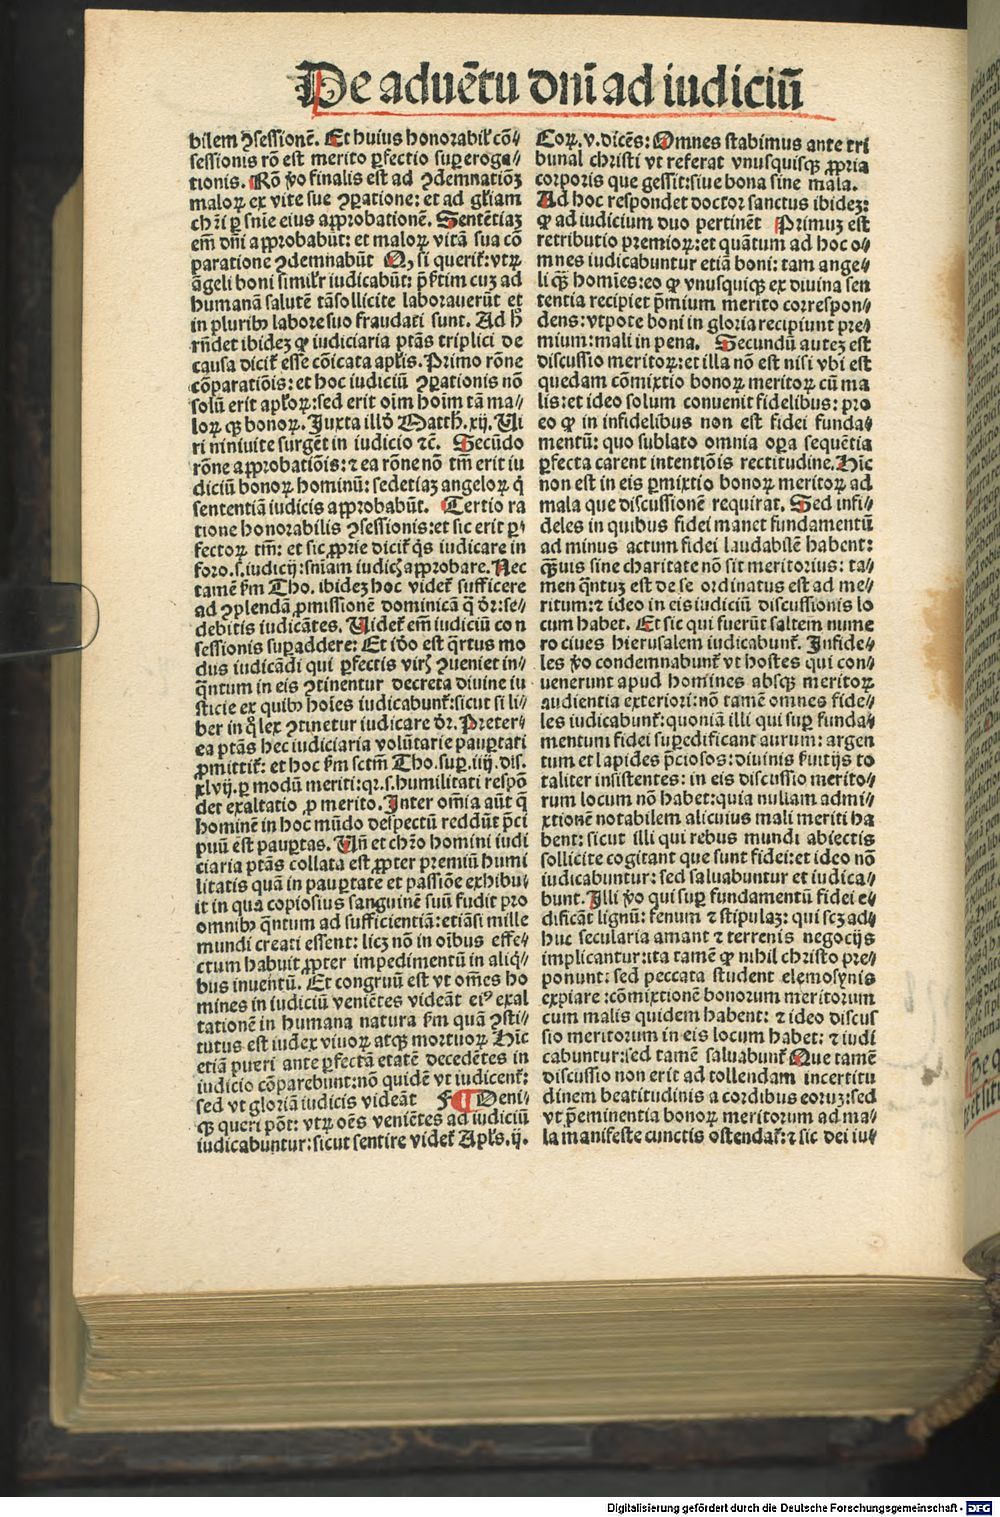 De aduẽtu dnĩ ad iudiciũ
bilem ꝯsessionẽ. Et huius honorabil̃ cõ⸗
sessionis rõ est merito ꝑfectio suꝑeroga⸗
tionis. Rõ ṽo finalis est ad ꝯdemnationẽ
maloꝝ ex vite sue ꝯꝑatione: et ad gl̃iam
chr̃i ꝑ sñie eius aꝓprobationẽ. Sentẽtiaꝫ
em̃ dñi aꝓprobabũt: et maloꝝ vitã sua cõ
paratione ꝯdemnabũt Qꝫ si querit̃: vtꝝ
ãgeli boni simil̃r iudicabũt: p̃tim cuꝫ ad
humanã salutẽ tã sollicite laborauerũt et
in pluribꝫ labore suo fraudati sunt. Ad h̃
rñdet ibideꝫ ꝙ iudiciaria ptãs triplici de
causa dicit̃ esse cõicata apl̃is. Primo rõne
cõparatiõis: et hoc iudiciũ ꝯꝑationis nõ
solũ erit apl̃oꝝ: sed erit oĩm hoĩm tã ma⸗
loꝝ qꝫ bonoꝝ. Juxta illd̃ Matth̃. xij. Ui
ri niniuite surgẽt in iudicio ⁊c̃. Secũdo
rõne aꝓprobatiõis: ⁊ ea rõne nõ tm̃ erit iu
diciũ bonoꝝ hominũ: sed etiaꝫ angeloꝝ q̃
sententiã iudicis aꝓprobabũt. Tertio ra
tione honorabilis ꝯsessionis: et sic erit ꝑ⸗
fectoꝝ tm̃: et sic ꝓprie dicit̃ q̃s iudicare in
foro. s. iudicij: sñiam iudicꝭ aꝓprobare. Nec
tamẽ ẜm Tho. ibideꝫ hoc videt̃ sufficere
ad ꝯplendã ꝓmissionẽ dominicã q̃ dr̃: se⸗
debitis iudicãtes. Uidet̃ em̃ iudiciũ con
sessionis suꝑaddere: Et iõo est q̃rtus mo
dus iudicãdi qui ꝑfectis virꝭ ꝯueniet in⸗
q̃ntum in eis ꝯtinentur decreta diuine iu
sticie ex quibꝫ hoĩes iudicabunt̃: sicut si li⸗
ber in q̃ lex ꝯtinetur iudicare dr̃. Preter⸗
ea ptãs hec iudiciaria volũtarie pauꝑtati
ꝓmittit̃: et hoc ẜm sctm̃ Tho. suꝑ. iiij. dis.
xlvij. ꝑ modũ meriti: qꝛ. s. humilitati respõ
det exaltatio ꝓ merito. Inter om̃ia aũt q̃
hominẽ in hoc mũdo despectũ reddũt p̃ci
puũ est pauꝑtas. Uñ et chr̃o homini iudi
ciaria ptãs collata est ꝓpter premiũ humi
litatis quã in pauꝑtate et passiõe exhibu⸗
it in qua copiosius sanguinẽ suũ fudit pro
omnibꝫ q̃ntum ad sufficientiã: etiãsi mille
mundi creati essent: licꝫ nõ in oĩbus effe⸗
ctum habuit ꝓpter impedimentũ in aliq̃⸗
bus inuentũ. Et congruũ est vt om̃es ho
mines in iudiciũ veniẽtes videãt eiꝰ exal
tationẽ in humana natura ẜm quã ꝯsti⸗
tutus est iudex viuoꝝ atqꝫ mortuoꝝ. Hĩc
etiã pueri ante ꝑfectã etatẽ decedẽtes in
iudicio cõparebunt: nõ quidẽ vt iudicent̃:
sed vt gloriã iudicis videãt F ¶ Deni⸗
qꝫ queri põt: vtꝝ oẽs veniẽtes ad iudiciũ
iudicabuntur: sicut sentire videt̃ Apl̃s. ij.
Coꝝ. v. dicẽs: Omnes stabimus ante tri
bunal christi vt referat vnusquisqꝫ ꝓpria
corporis que gessit: siue bona siue mala.
Ad hoc respondet doctor sanctus ibideꝫ:
ꝙ ad iudicium duo pertinẽt Primuꝫ est
retributio premioꝝ: et quãtum ad hoc o⸗
mnes iudicabuntur etiã boni: tam ange⸗
li qꝫ homies: eo ꝙ vnusquisqꝫ ex diuina sen
tentia recipiet p̃mium merito correspon⸗
dens: vtpote boni in gloria recipiunt pre⸗
mium: mali in pena. Secundũ auteꝫ est
discussio meritoꝝ: et illa nõ est nisi vbi est
quedam cõmixtio bonoꝝ meritoꝝ cũ ma
lis: et ideo solum conuenit fidelibus: pro
eo ꝙ in infidelibus non est fidei funda⸗
mentũ: quo sublato omnia oꝑa sequẽtia
ꝑfecta carent intentiõis rectitudine. Hĩc
non est in eis ꝑmixtio bonoꝝ meritoꝝ ad
mala que discussionẽ requirat. Sed infi⸗
deles in quibus fidei manet fundamentũ
ad minus actum fidei laudabilẽ habent:
qꝫuis sine charitate nõ sit meritorius: ta⸗
men q̃ntuꝫ est de se ordinatus est ad me⸗
ritum: ⁊ ideo in eis iudiciũ discussionis lo
cum habet. Et sic qui fuerũt saltem nume
ro ciues hierusalem iudicabunt̃. Infide⸗
les ṽo condemnabunt̃ vt hostes qui con⸗
uenerunt apud homines absqꝫ meritoꝝ
audientia exteriori: nõ tamẽ omnes fide⸗
les iudicabunt̃: quoniã illi qui suꝑ funda⸗
mentum fidei suꝑedificant aurum: argen
tum et lapides p̃ciosos: diuinis ẜuitijs to
taliter insistentes: in eis discussio merito⸗
rum locum nõ habet: quia nullam admi⸗
xtionẽ notabilem alicuius mali meriti ha
bent: sicut illi qui rebus mundi abiectis
sollicite cogitant que sunt fidei: et ideo nõ
iudicabuntur: sed saluabuntur et iudica⸗
bunt. Illi ṽo qui suꝑ fundamentũ fidei e⸗
dificãt lignũ: fenum ⁊ stipulaꝫ: qui scꝫ ad⸗
huc secularia amant ⁊ terrenis negocijs
implicantur: ita tamẽ ꝙ nihil christo pre⸗
ponunt: sed peccata student elemosynis
expiare: cõmixtionẽ bonorum meritorum
cum malis quidem habent: ⁊ ideo discus
sio meritorum in eis locum habet: ⁊ iudi
cabuntur: sed tamẽ saluabunt̃. Que tamẽ
discussio non erit ad tollendam incertitu
dinem beatitudinis a cordibus eoruꝫ: sed
vt p̃eminentia bonoꝝ meritorum ad ma⸗
la manifeste cunctis ostendat̃: ⁊ sic dei iu⸗
Digitalisierung gefördert durch die Deutsche Forschungsgemeinschaft - DFG